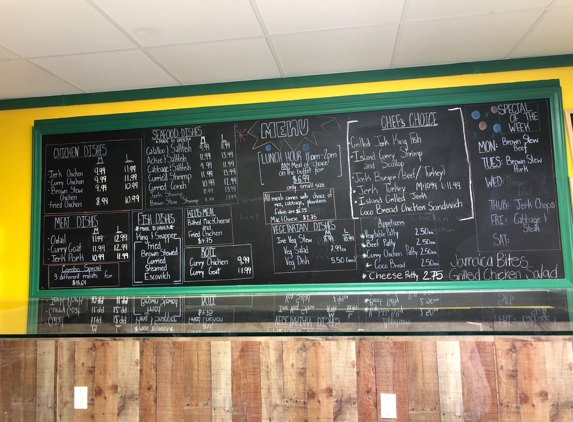 CHICKEN DISHES
M L
Jerk Chicken 9.99 11.99
Curry Chicken 9.99 11.99
Brown Stew Chicken 9.99 11.99
Fried Chicken 8.99 10.99
MEAT DISHES
M L
Oxtail 11.99 12.99
Curry Goat 11.99 12.99
Jerk Pork 10.99 11.99
Combo Special
3 different meats for
SEAFOOD DISHES
M L
Ackee & Saltfish
Cabbage & Saltfish
Curried Shrimp
Curried Conch
Brown Stew Shrimp
FISH DISHES
* MADE TO ORDER *
King / Snapper
Fried
Brown Stewed
Curried
Steamed
Escovitch
KIDS MEAL
Baked Mac Cheese
and
Fried Chicken
$4.75
Curry Chicken 9.99
Curry Goat 11.99
MENU
LUNCH HOUR 11am-2pm
ANY Meat of Choice
on the buffet for
$6.99
only small size
All meals comes with choice of
rice, cabbage & plantains
Mac & Cheese $1.75
VEGETARIAN DISHES
M L
Irie Veg Stew 8.99 10.99
Veg Salad 7.99
Veg Dish 5.50
CHEF'S CHOICE
Grilled Jerk King Fish
Island Curry Shrimp
and Scallop
Jerk Burger (Beef / Turkey)
Jerk Turkey M 10.99 L 11.99
Island Grilled Jerk
Coco Bread Chicken Sandwich
Appetizers
* Vegetable Patty 2.50
* Beef Patty 2.50
* Curry Chicken Patty 2.50
* Coco Bread 2.50
* Cheese Patty 2.75
SPECIAL
OF THE
WEEK
MON: Brown Stew
Beef
TUES: Brown Stew
Pork
WED:
THUR: Jerk Chops
FRI: Cabbage &
SAT:
Jamaica Bites
Grilled Chicken Salad